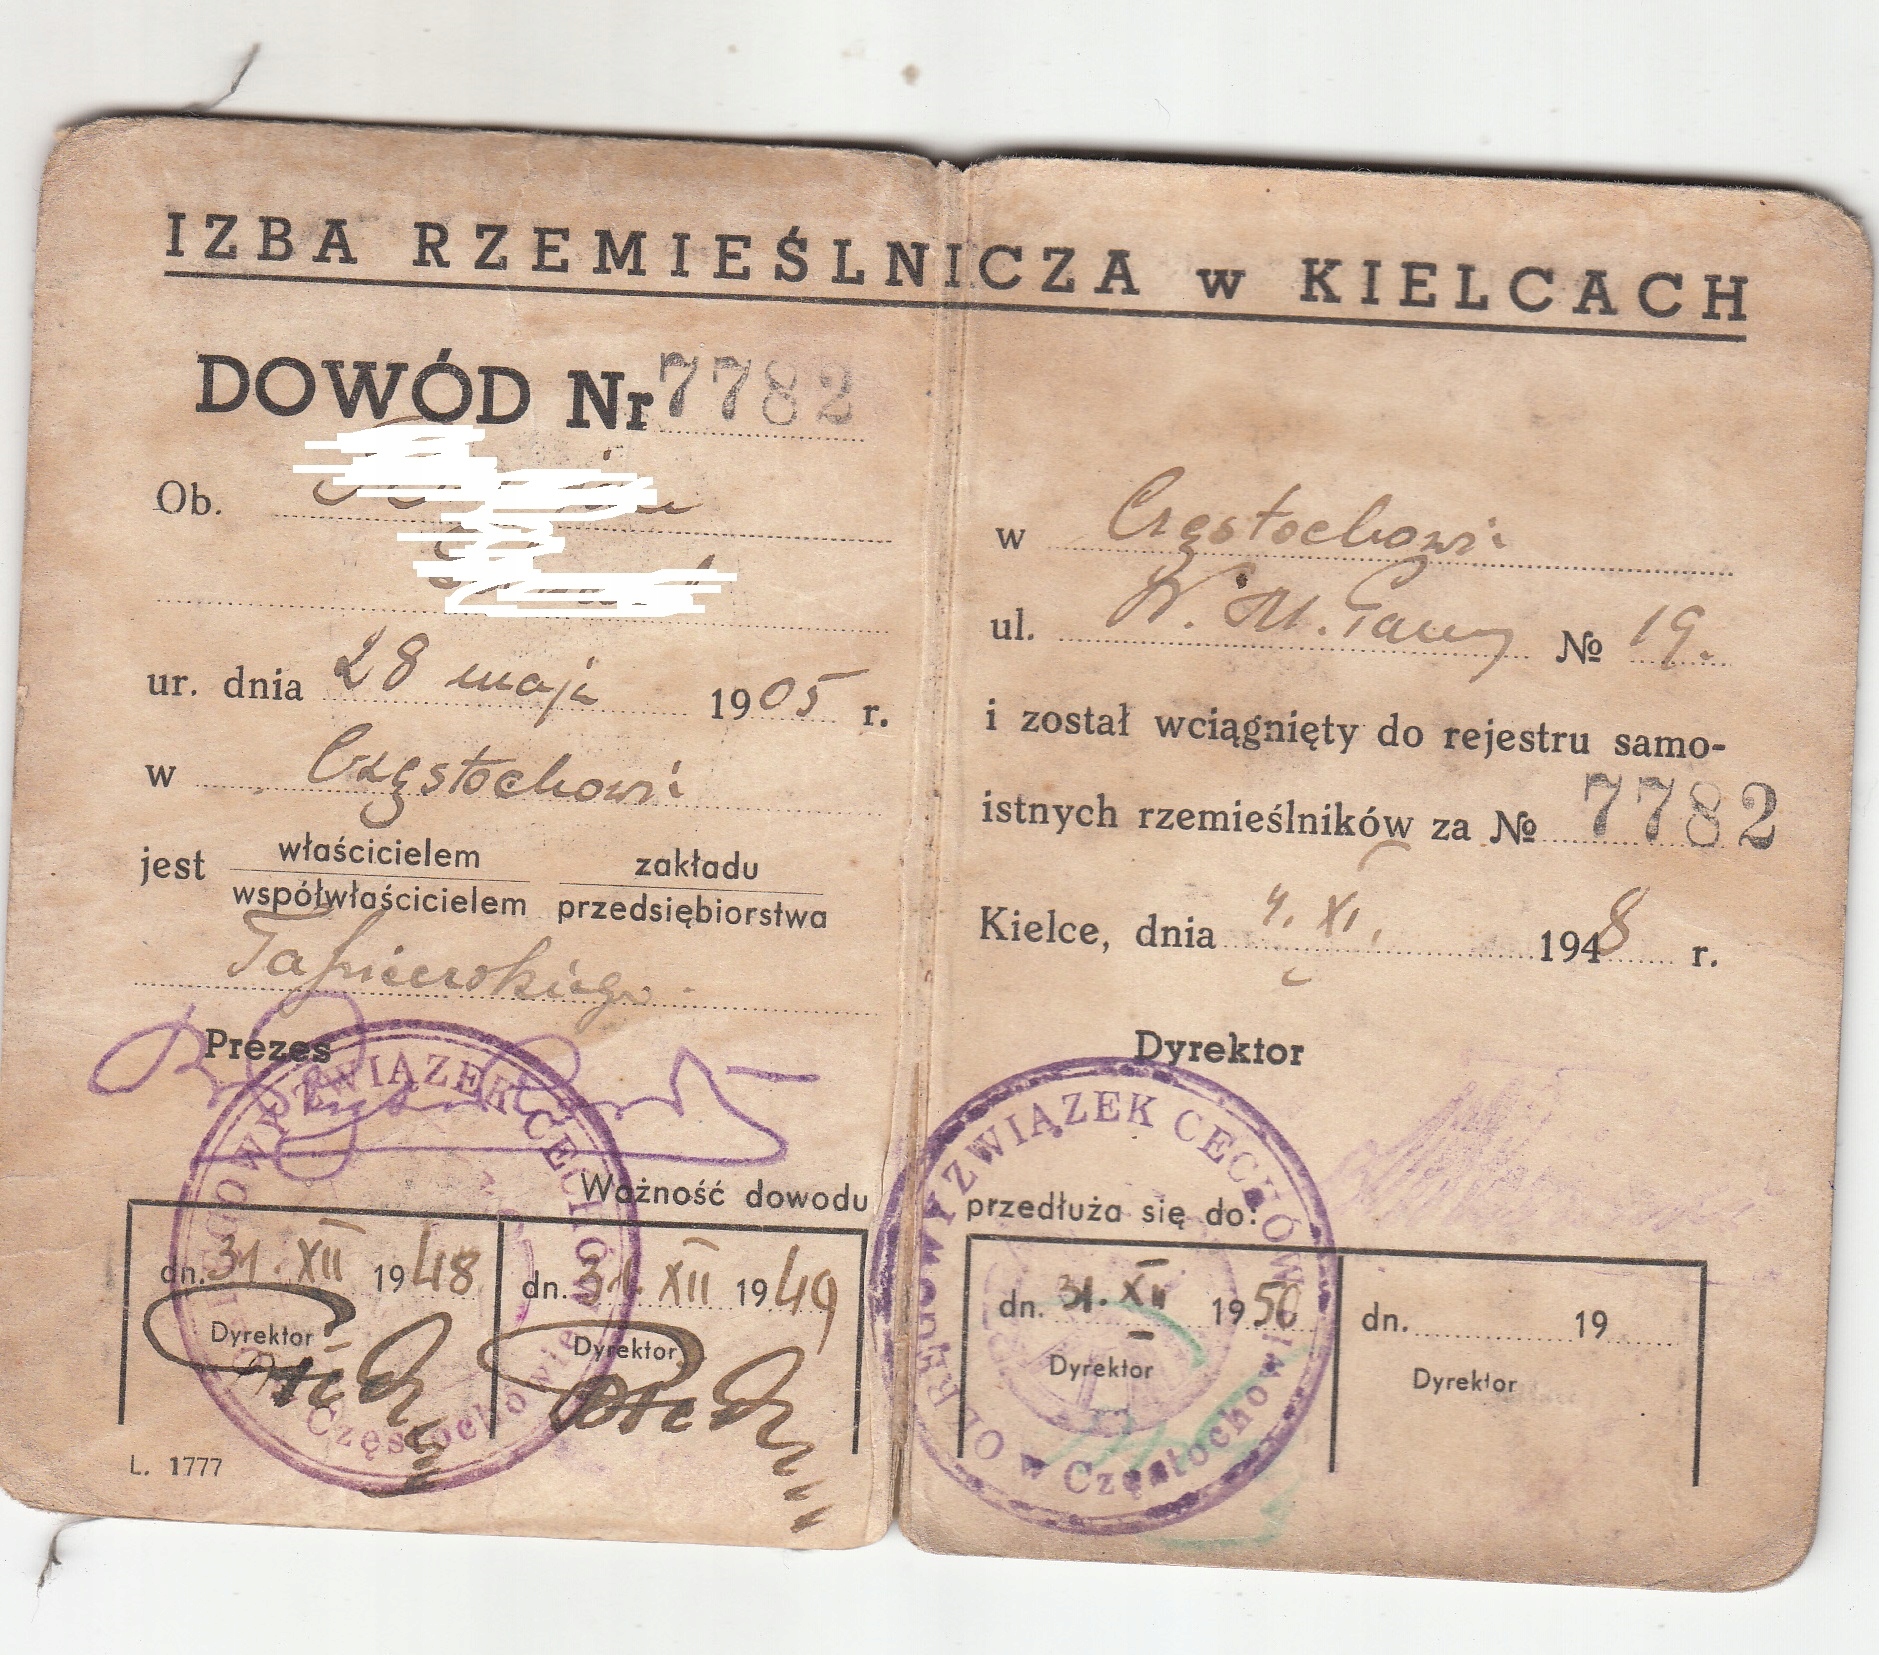 IZBA RZEMIEŚLNICZA w KIELCACH
DOWÓD Nr 7782
Ob.
ur. dnia 28 maja 1905 r.
w Częstochowie
jest właścicielem zakładu
współwłaścicielem przedsiębiorstwa
Tapicerskiego
Prezes
Ważność dowodu
dn. 31. XII 1948
Dyrektor
dn. 31. XII 1949
Dyrektor
L. 1777
OKRĘGOWY ZWIĄZEK CECHÓW
w Częstochowie
w Częstochowie
ul. N. M. Panny № 19.
i został wciągnięty do rejestru samo-
istnych rzemieślników za № 7782
Kielce, dnia 4. XI. 1948 r.
Dyrektor
przedłuża się do:
dn. 31. XII 1950
Dyrektor
dn. 19
Dyrektor
OKRĘGOWY ZWIĄZEK CECHÓW
w Częstochowie